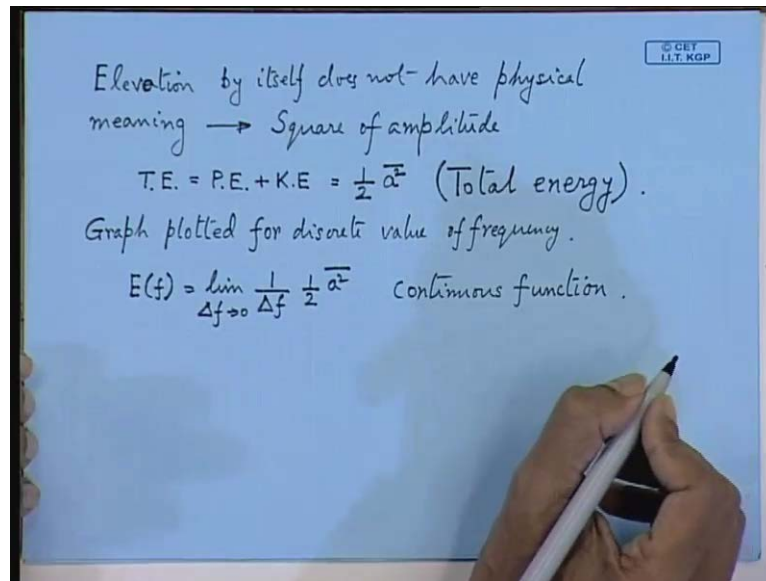 © CET
I.I.T. KGP
Elevation by itself does not have physical
meaning → Square of amplitude
T.E. = P.E. + K.E = 1/2 a̅²̅ (Total energy).
Graph plotted for discrete value of frequency.
E(f) = lim Δf→0 1/Δf 1/2 a̅²̅ continuous function.